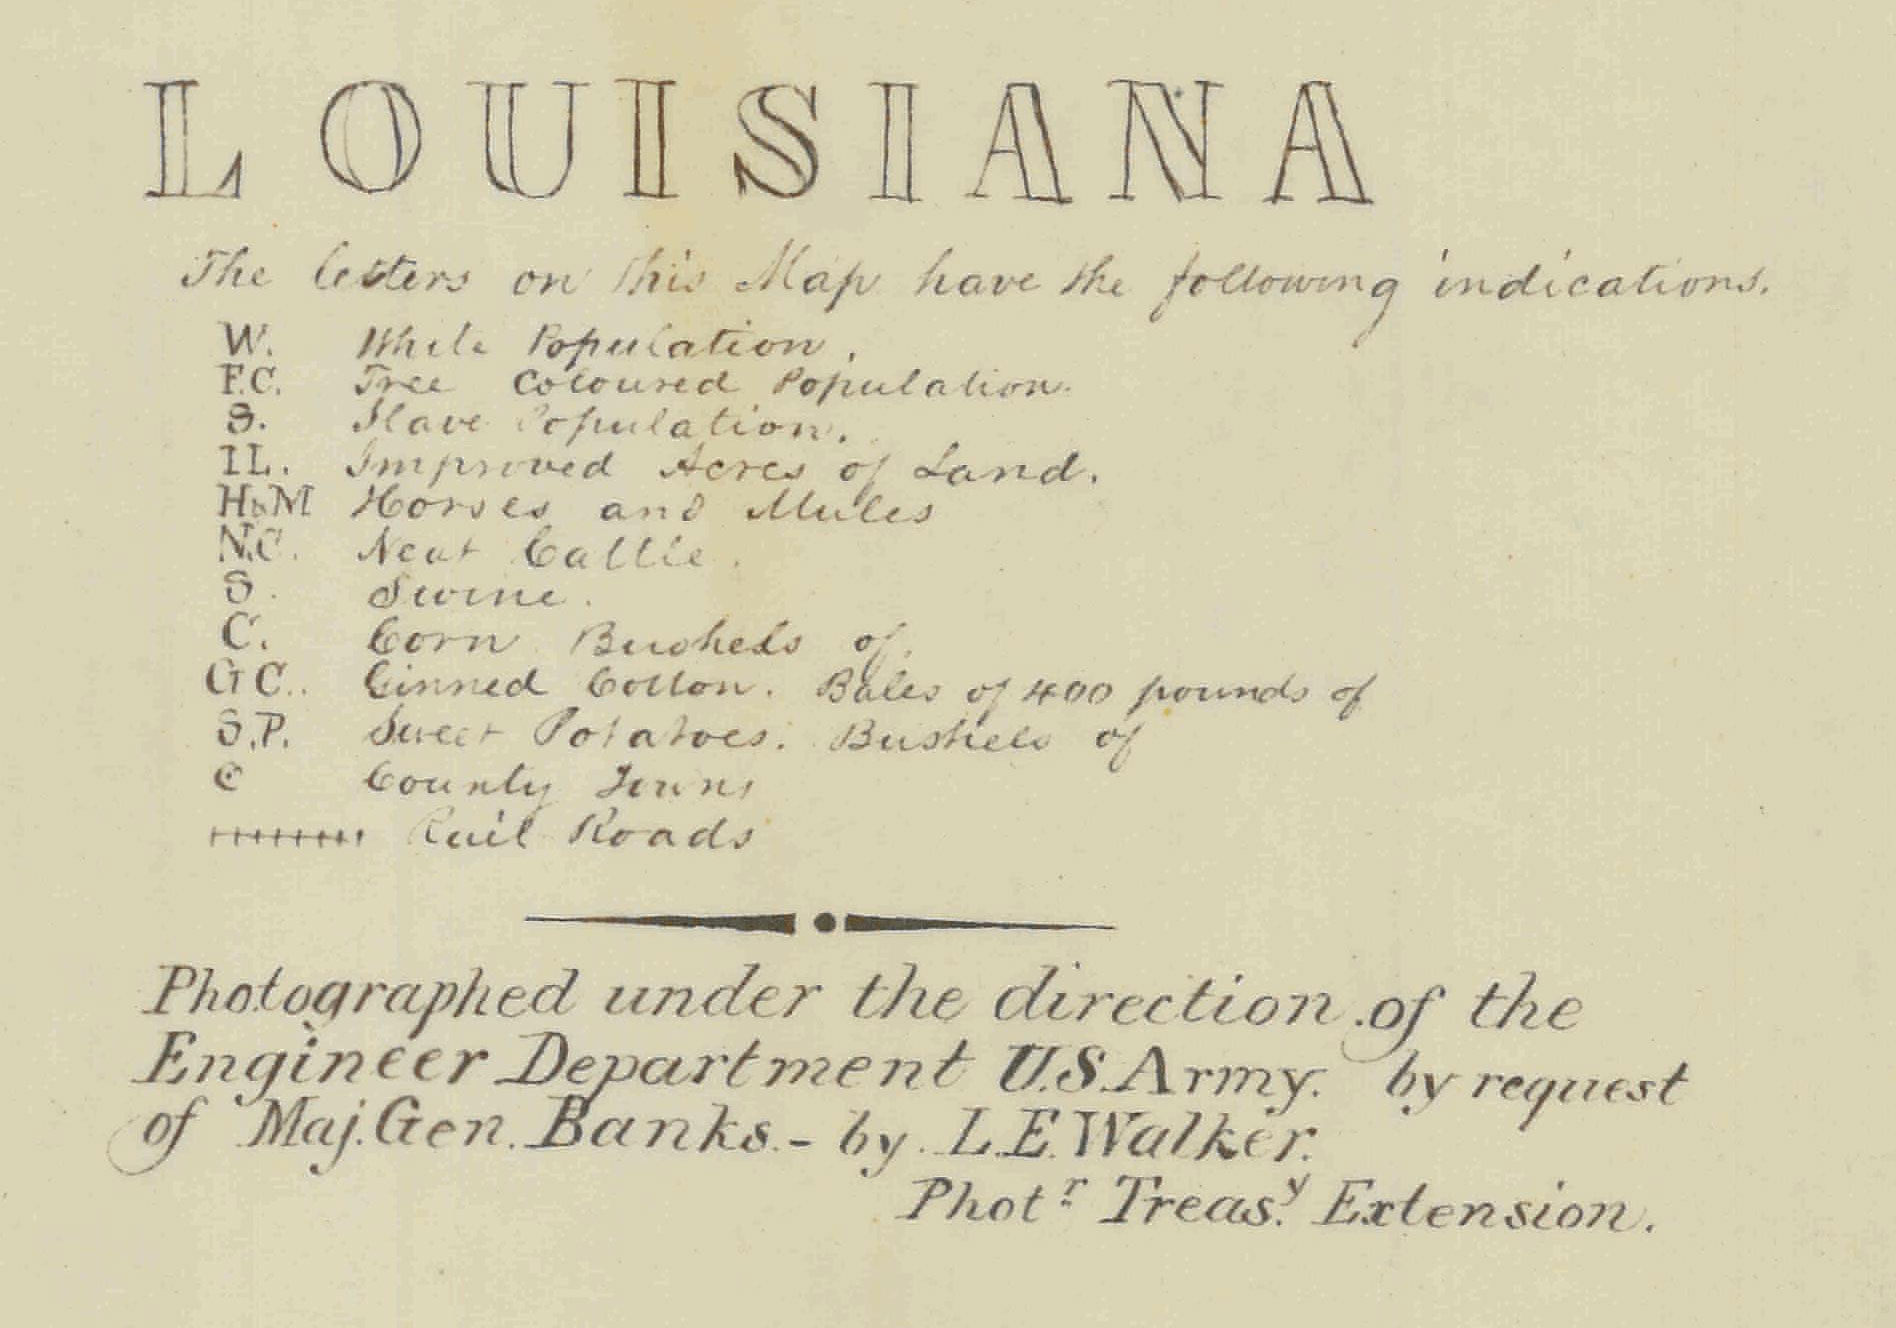 LOUISIANA
The letters on this Map have the following indications.
W. White Population.
F.C. Free Coloured Population.
S. Slave Population.
I L. Improved Acres of Land.
H&M Horses and Mules
N.C. Neat Cattle.
S. Swine.
C. Corn Bushels of.
G C.. Ginned Cotton. Bales of 400 pounds of
S.P. Sweet Potatoes. Bushels of
C County Towns
Rail Roads
Photographed under the direction of the
Engineer Department U.S. Army. by request
of Maj. Gen. Banks. - by L.E. Walker.
Photr Treas.y Extension.